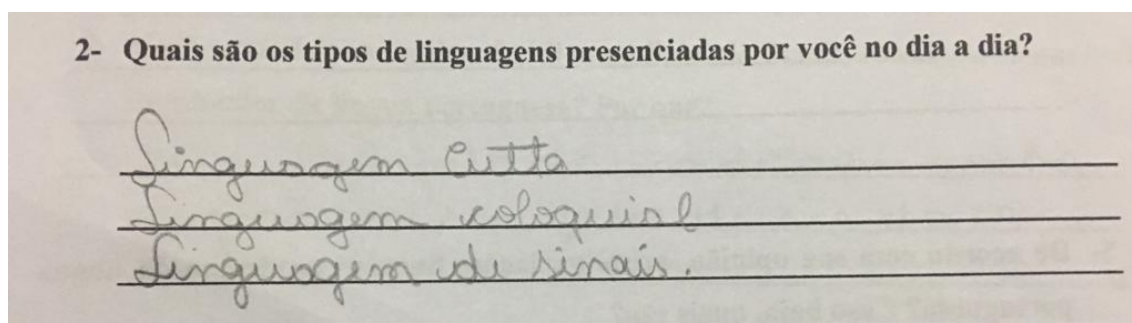 2- Quais são os tipos de linguagens presenciadas por você no dia a dia?
Linguagem Cutta
Linguagem coloquial
Linguagem de sinais.